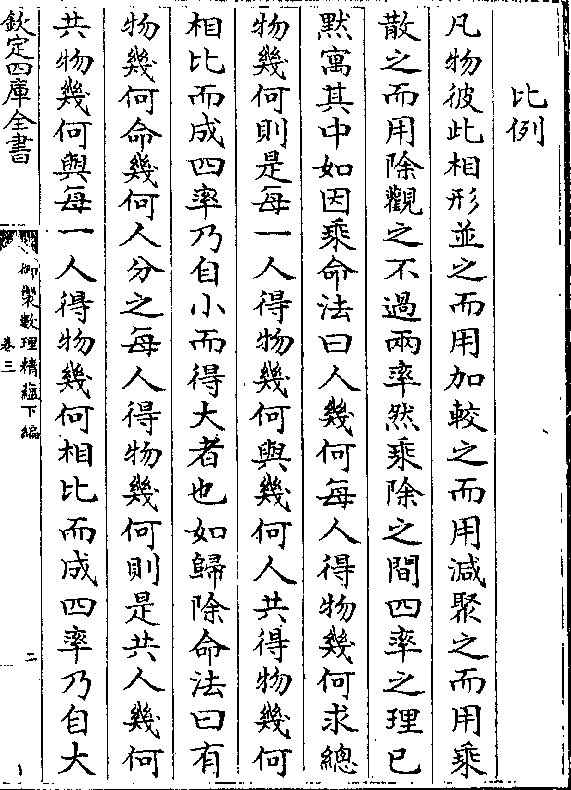 比例
凡物彼此相形並之而用加較之而用減聚之而用乘
散之而用除觀之不過兩率然乘除之間四率之理已
黙寓其中如因乘命法曰人幾何每人得物幾何求總
物幾何則是每一人得物幾何與幾何人共得物幾何
相比而成四率乃自小而得大者也如歸除命法曰有
物幾何命幾何人分之每人得物幾何則是共人幾何
共物幾何與每一人得物幾何相比而成四率乃自大
欽定四庫全書
御製數理精藴下編
卷三
二